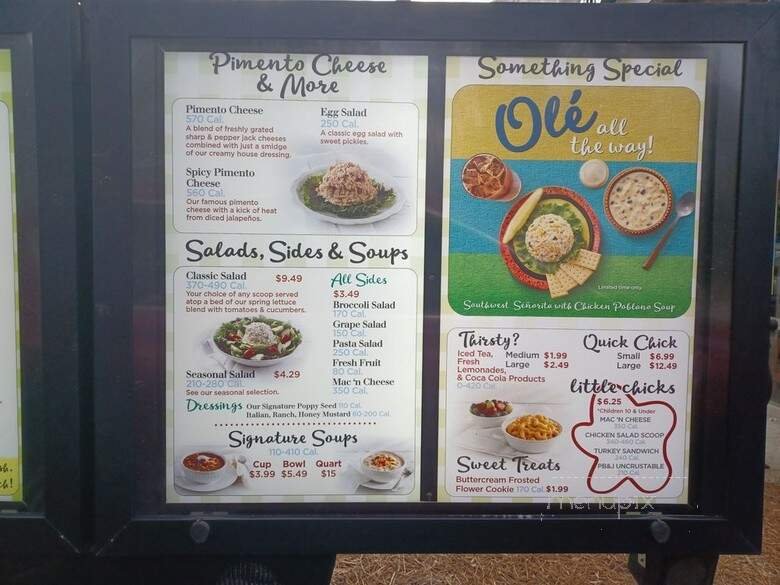 Pimento Cheese
& More
Pimento Cheese
570 Cal.
A blend of freshly grated
sharp & pepper jack cheeses
combined with just a smidge
of our creamy house dressing.
Spicy Pimento
Cheese
560 Cal.
Our famous pimento
cheese with a kick of heat
from diced jalapeños.
Egg Salad
250 Cal.
A classic egg salad with
sweet pickles.
Salads, Sides & Soups
Classic Salad $9.49
370-490 Cal.
Your choice of any scoop served
atop a bed of our spring lettuce
blend with tomatoes & cucumbers.
Seasonal Salad $4.29
210-280 Cal.
See our seasonal selection.
All Sides
$3.49
Broccoli Salad
170 Cal.
Grape Salad
150 Cal.
Pasta Salad
250 Cal.
Fresh Fruit
80 Cal.
Mac 'n Cheese
350 Cal.
Dressings Our Signature Poppy Seed 110 Cal.
Italian, Ranch, Honey Mustard 60-200 Cal.
Signature Soups
110-410 Cal.
Cup Bowl Quart
$3.99 $5.49 $15
Something Special
Olé all
the way!
Limited time only.
Southwest Señorita with Chicken Poblano Soup
Thirsty?
Iced Tea,
Fresh
Lemonades,
& Coca Cola Products
0-420 Cal.
Medium $1.99
Large $2.49
Quick Chick
Small $6.99
Large $12.49
little chicks
$6.25
*Children 10 & Under
MAC 'N CHEESE
350 Cal.
CHICKEN SALAD SCOOP
340-460 Cal.
TURKEY SANDWICH
240 Cal.
PB&J UNCRUSTABLE
210 Cal.
Sweet Treats
Buttercream Frosted
Flower Cookie 170 Cal. $1.99
menupix